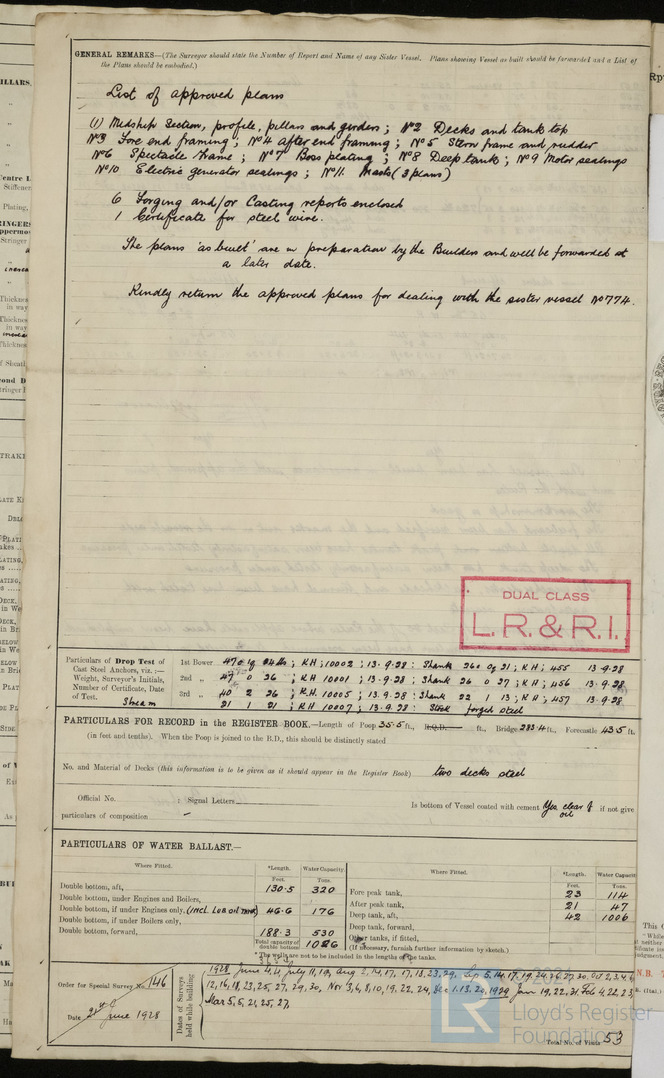 GENERAL REMARKS—(The Surveyor should state the Number of Report and Name of any Sister Vessel. Plans showing Vessel as built should be forwarded and a List of
the Plans should be embodied.)
List of approved plans
(1) Midship Section, profile, pillars and girders; Nº2 Decks and tank top
Nº3 Fore end framing; Nº4 After end framing; Nº5 Stern frame and rudder
Nº6 Spectacle frame; Nº7 Boss plating; Nº8 Deep tanks; Nº9 Motor seatings
Nº10 Electric generator seatings; Nº11. Masts (3 plans)
6 Forging and/or Casting reports enclosed
1 Certificate for steel wire.
The plans 'as built' are in preparation by the Builders and will be forwarded at
a later date.
Kindly return the approved plans for dealing with the sister vessel Nº774.
DUAL CLASS
L.R. & R.I.
Particulars of Drop Test of
Cast Steel Anchors, viz.:—
Weight, Surveyor's Initials,
Number of Certificate, Date
of Test.
1st Bower ; KH; 10002; 13.9.28: Shank 26 0 21; KH; 455 13.9.28
2nd „ 26 ; KH 10001; 13.9.28; Shank 26 0 27; KH; 456 13.9.28
3rd „ 40 2 26 ; KH. 10005; 13.9.28: Shank 22 1 13; KH; 457 13.9.28
Stream 21 1 21; KH 10007; 13.9.28: Stock forged steel
PARTICULARS FOR RECORD in the REGISTER BOOK.—Length of Poop 35.5 ft., R.Q.D. ft., Bridge 283.4 ft., Forecastle 43.5 ft.
(in feet and tenths). When the Poop is joined to the B.D., this should be distinctly stated
No. and Material of Decks (this information is to be given as it should appear in the Register Book) two decks steel
Official No. ; Signal Letters Is bottom of Vessel coated with cement Yes clear of oil if not give
particulars of composition –
PARTICULARS OF WATER BALLAST.—
Where Fitted. *Length. Water Capacity. Where Fitted. *Length. Water Capacity
Feet. Tons. Feet. Tons.
Double bottom, aft, 130.5 320
Double bottom, under Engines and Boilers,
Double bottom, if under Engines only, (INCL. LUB OIL TANK) 46.6 176
Double bottom, if under Boilers only,
Double bottom, forward, 188.3 530
Total capacity of double bottom 1026
Fore peak tank, 23 114
After peak tank, 21 47
Deep tank, aft, 42 1006
Deep tank, forward,
Other tanks, if fitted,
(If necessary, furnish further information by sketch.)
* The wells are not to be included in the lengths of the tanks.
Order for Special Survey No. 146
Date June 1928
Dates of Surveys
held while building
1928 June 4, July 11, 19, Aug 2, 14, 17, 17, 18, 23, 29, Sep 5, 14, 17, 19, 24, 26, 27, 30, Oct 2, 3, 4, 6
12, 16, 18, 23, 25, 27, 29, 30, Nov 3, 6, 8, 10, 19, 22, 24, Dec 1, 13, 20, 1929 Jan 19, 22, 31, Feb 4, 22, 23,
Mar 5, 5, 21, 25, 27,
Total No. of Visits 53
LR
Lloyd's Register
Foundation